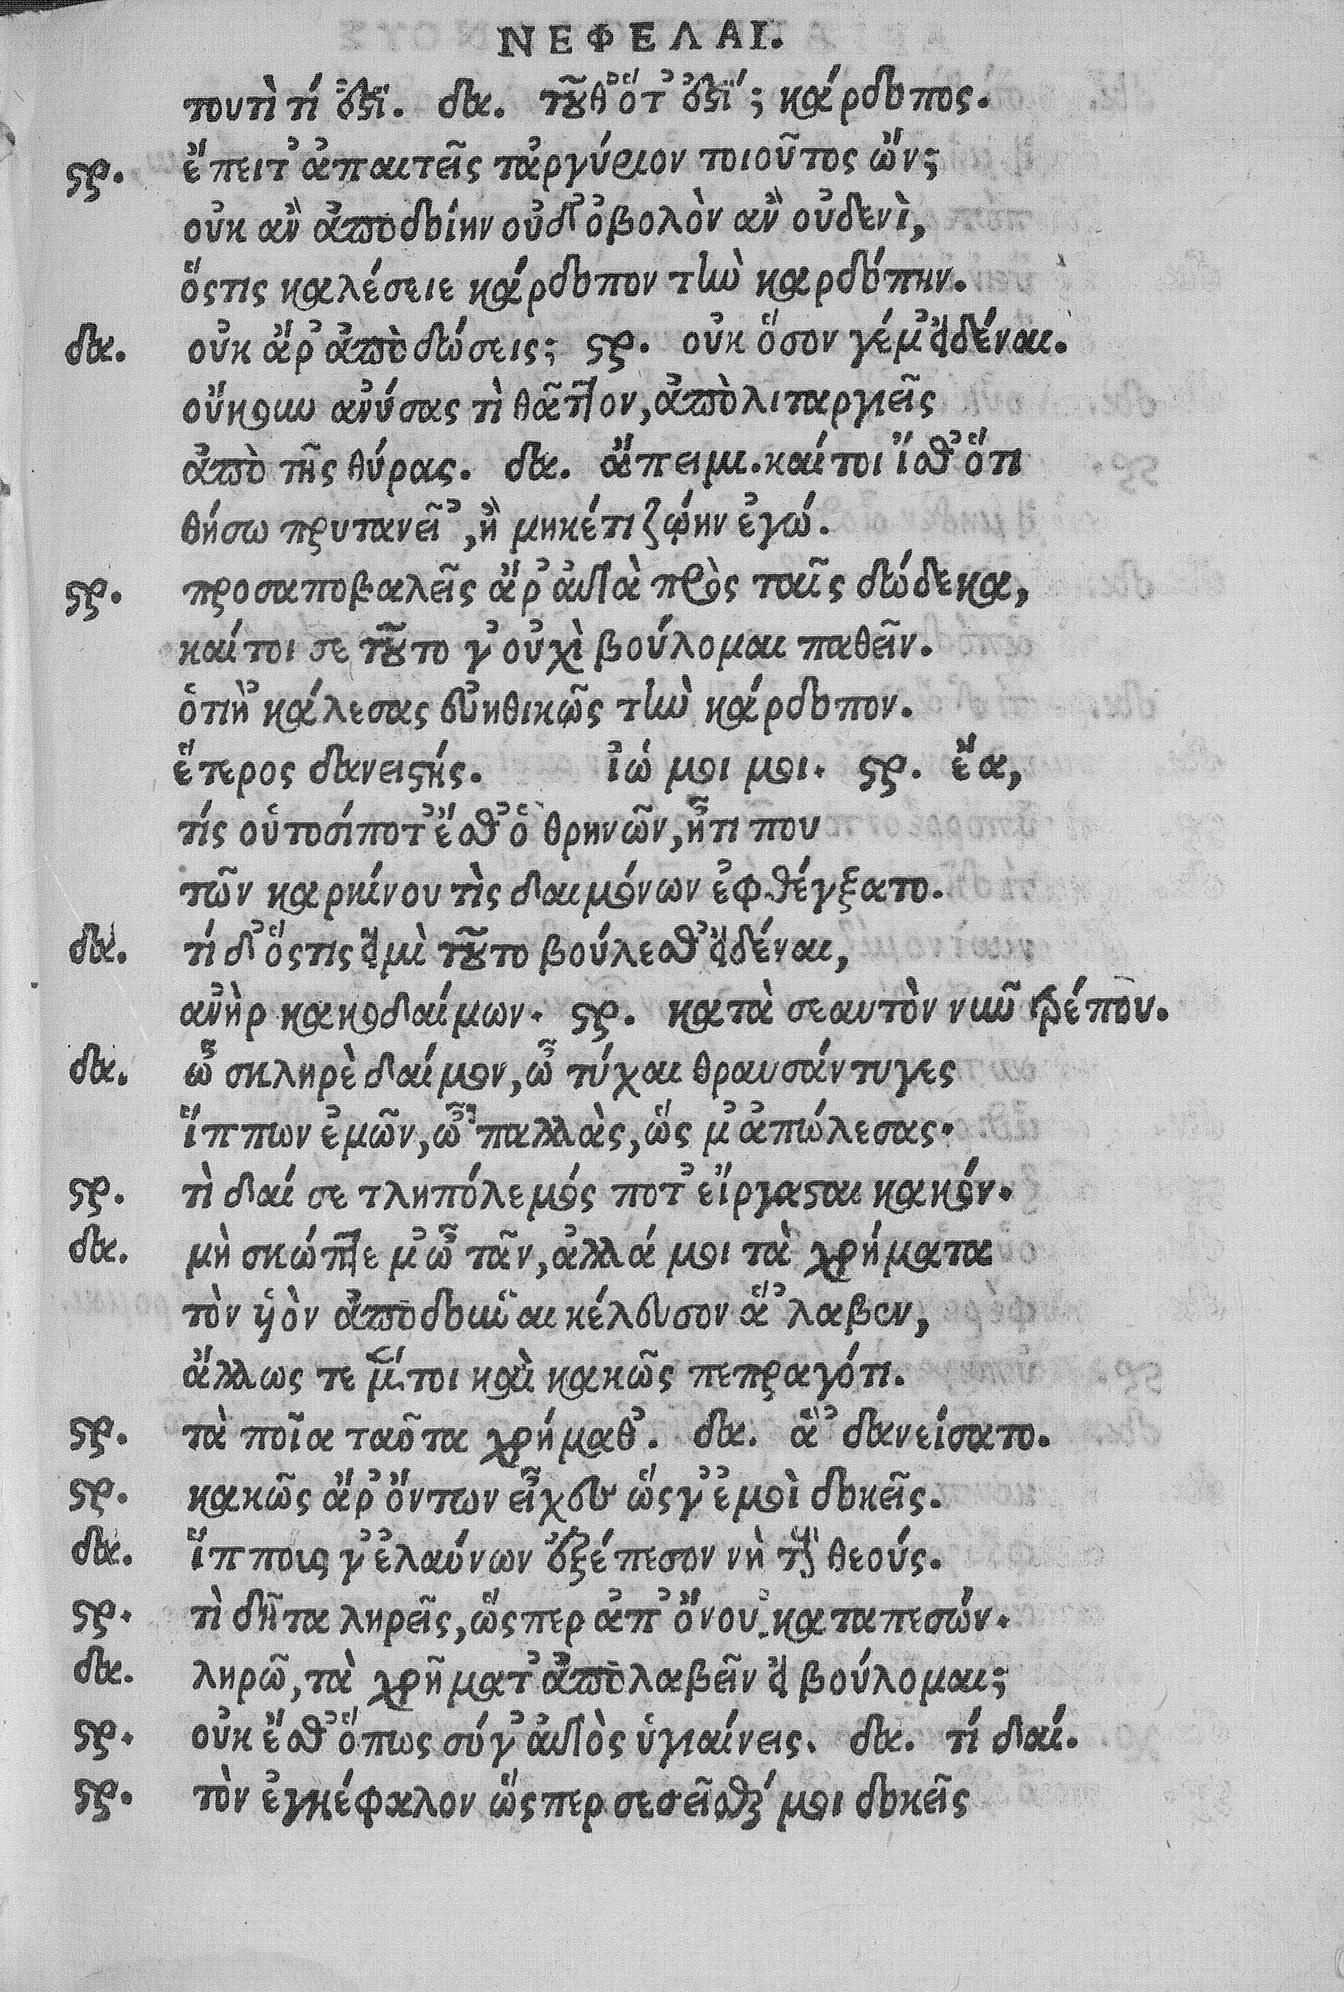 ΝΕΦΕΛΑΙ.
τουτὶ τί ἐστί. δα. τοῦθ' ὅτ' ἐστί; κάρδοπος.
ςρ. ἔπειτ' ἀπαιτεῖς τἀργύριον τοιοῦτος ὤν;
οὐκ ἂν ἀποδοίην οὐδ' ὀβολὸν ἂν οὐδενὶ,
ὅςτις καλέσειε κάρδοπον τὴν καρδόπην.
δα. οὐκ ἄρ' ἀποδώσεις; ςρ. οὐκ ὅσον γέμ' εἰδέναι.
οὔκουν ἀνύσας τὶ θᾶττον, ἀπολιταργιεῖς
ἀπὸ τῆς θύρας. δα. ἄπειμι. καίτοι ἴσθ' ὅτι
θήσω πρυτανεῖ', ἢ μηκέτι ζῴην ἐγώ.
ςρ. προσαποβαλεῖς ἄρ' αὐτὰ πρὸς ταῖς δώδεκα,
καίτοι σε τοῦτο γ' οὐχὶ βούλομαι παθεῖν.
ὁτιὴ κάλεσας εὐηθικῶς τὴν κάρδοπον.
ἕτερος δανειςής. ἰώ μοι μοι. ςρ. ἔα,
τίς οὑτοσίποτ' ἔσθ' ὁ θρηνῶν, ἦτι που
τῶν καρκίνου τὶς δαιμόνων ἐφθέγξατο.
δα. τί δ' ὅςτις εἰμὶ τοῦτο βούλεσθ' εἰδέναι,
ἀνὴρ κακοδαίμων. ςρ. κατὰ σεαυτὸν νῦν τρέπου.
δα. ὦ σκληρὲ δαίμον, ὦ τύχαι θραυσάντυγες
ἵππων ἐμῶν, ὦ παλλὰς, ὥς μ' ἀπώλεσας.
ςρ. τὶ δαί σε τληπόλεμός ποτ' εἴργαςαι κακόν.
δα. μὴ σκώπτε μ' ὦ τᾶν, ἀλλά μοι τὰ χρήματα
τὸν ὑὸν ἀποδοῦναι κέλευσον ἃ 'λαβεν,
ἄλλως τε μέντοι καὶ κακῶς πεπραγότι.
ςρ. τὰ ποῖα ταῦτα χρήμαθ'. δα. ἃ 'δανείσατο.
ςρ. κακῶς ἄρ' ὄντων εἶχες ὥς γ' ἐμοὶ δοκεῖς.
δα. ἵππους γ' ἐλαύνων ἐξέπεσον νὴ τοὺς θεούς.
ςρ. τὶ δῆτα ληρεῖς, ὥςπερ ἀπ' ὄνου καταπεσών.
δα. ληρῶ, τὰ χρῆματ' ἀπολαβεῖν εἰ βούλομαι;
ςρ. οὐκ ἔσθ' ὅπως σύγ' αὐτὸς ὑγιαίνεις. δα. τί δαί.
ςρ. τὸν ἐγκέφαλον ὥςπερ σεσεῖσθαί μοι δοκεῖς